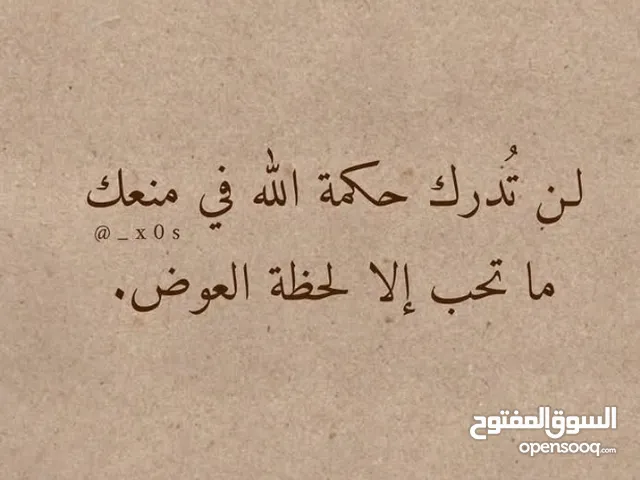 لن تُدرك حكمة الله في منعك
@_x0s
ما تحب إلا لحظة العوض.
السوق المفتوح
opensooq.com